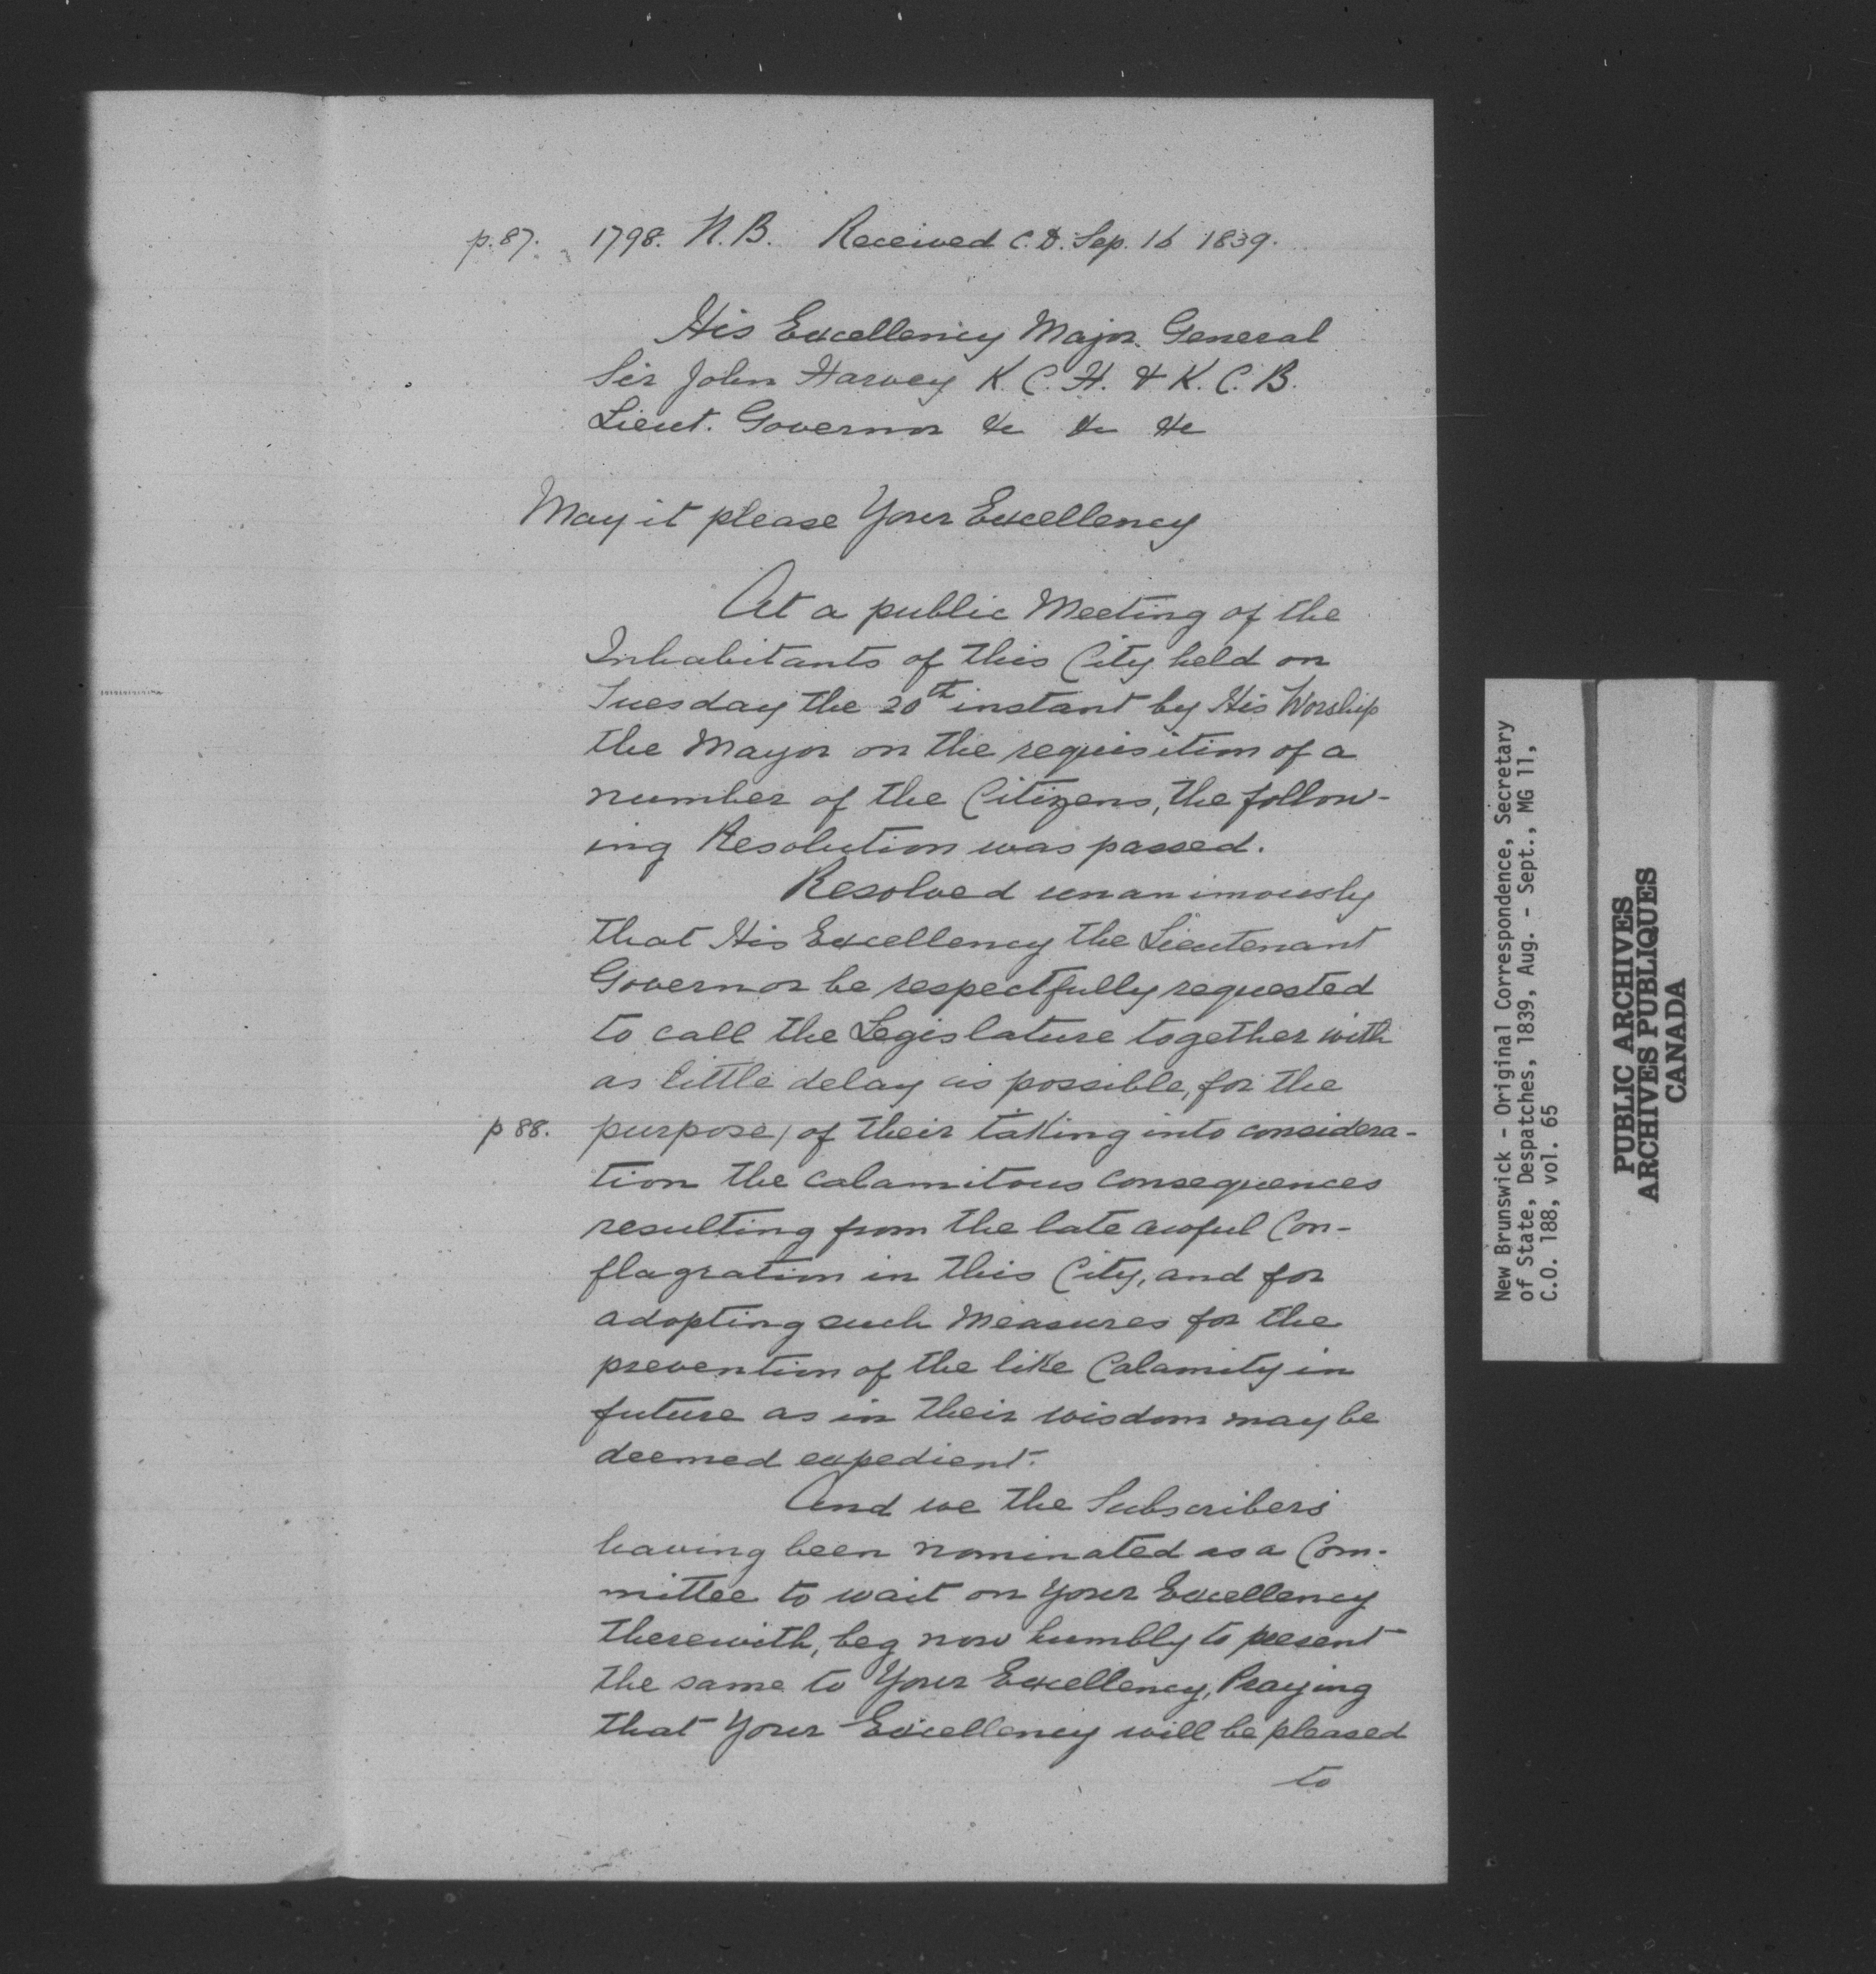 p. 87. 1798. N.B. Received C.D. Sep. 16 1839.
His Excellency Major General
Sir John Harvey K.C.H. & K.C.B.
Lieut. Governor &c &c &c
May it please Your Excellency
At a public Meeting of the
Inhabitants of this City held on
Tuesday the 20th instant by His Worship
the Mayor on the requisition of a
number of the Citizens, the follow-
ing Resolution was passed.
Resolved unanimously
that His Excellency the Lieutenant
Governor be respectfully requested
to call the Legislature together with
as little delay as possible, for the
p 88. purpose / of their taking into considera-
tion the calamitous consequences
resulting from the late awful Con-
flagration in this City, and for
adopting such Measures for the
prevention of the like Calamity in
future as in their wisdom may be
deemed expedient.
And we the Subscribers
having been nominated as a Com-
mittee to wait on Your Excellency
therewith, beg now humbly to present
the same to Your Excellency, Praying
that Your Excellency will be pleased
to
New Brunswick - Original Correspondence, Secretary
of State, Despatches, 1839, Aug. - Sept., MG 11,
C.O. 188, vol. 65
PUBLIC ARCHIVES
ARCHIVES PUBLIQUES
CANADA